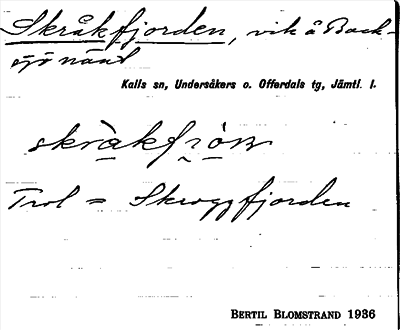 Skråkfjorden, vik å Back-
sjönäset
Kalls sn, Undersåkers o. Offerdals tg, Jämtl. l.
skràkfjòṛn
Trol = Skroggfjorden
BERTIL BLOMSTRAND 1936